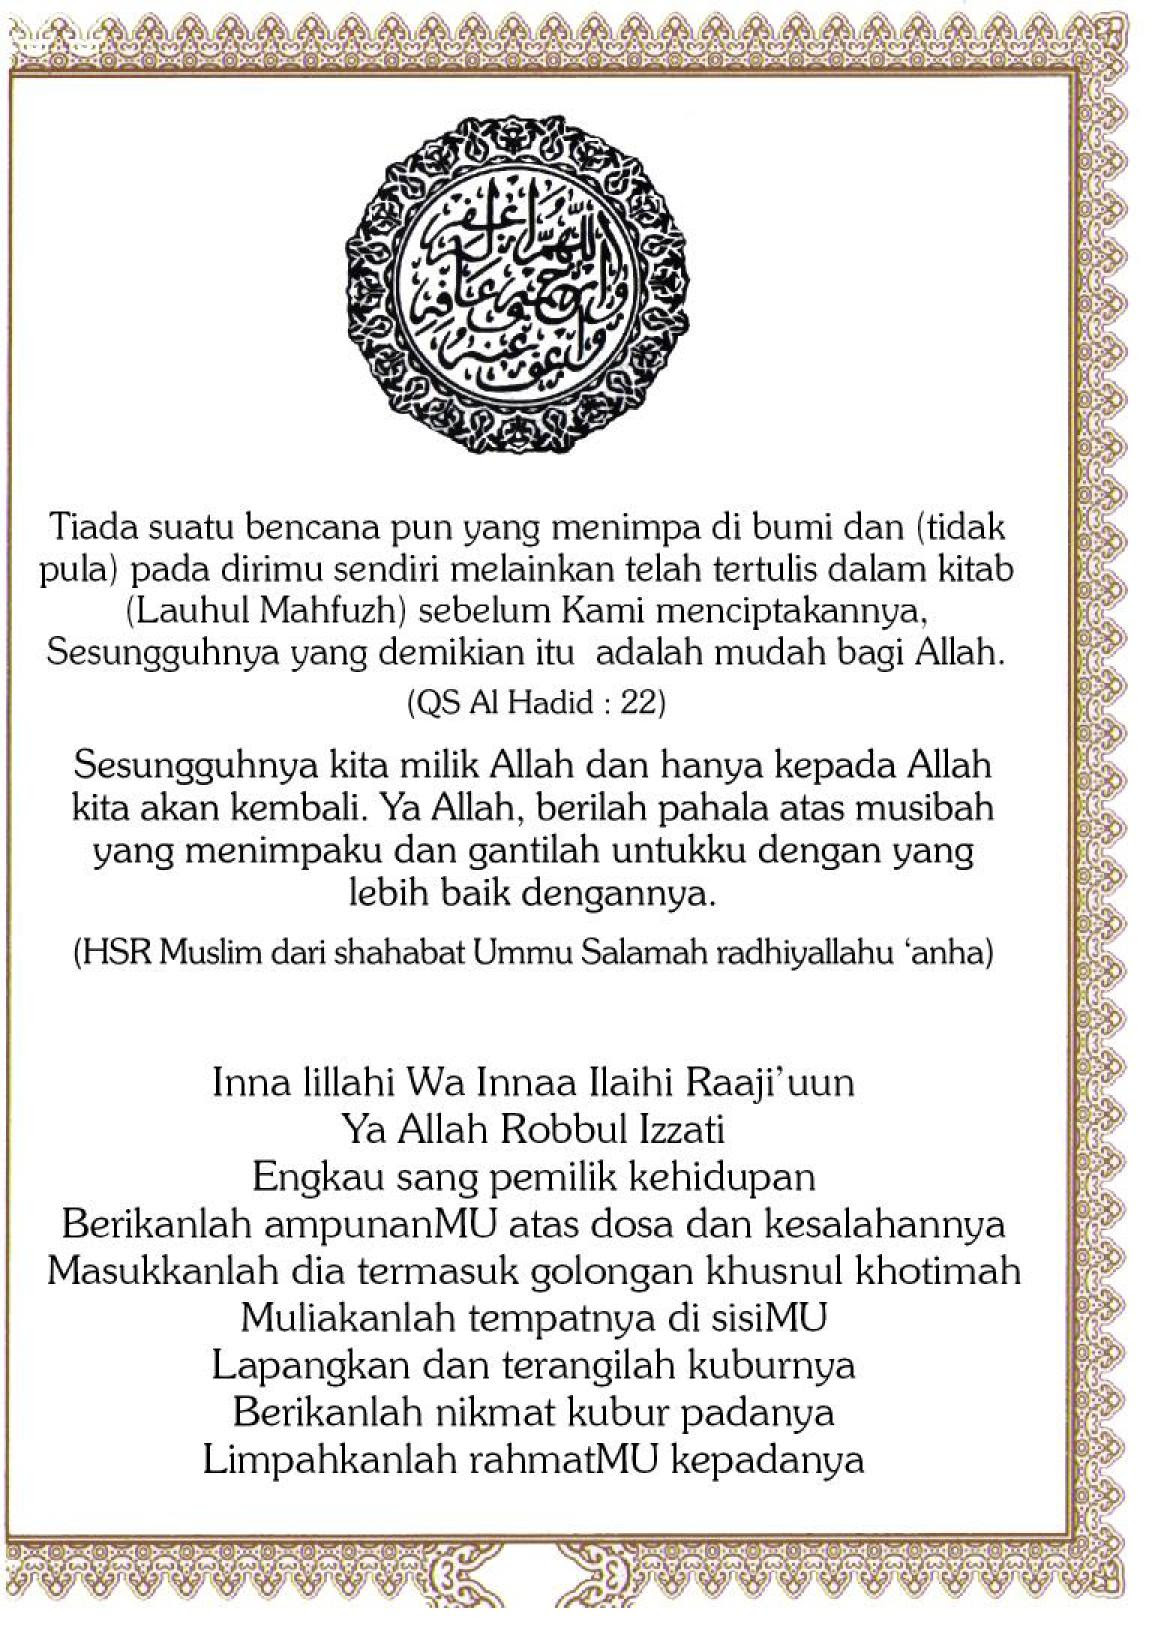 اللهم اغفر له
وارحمه وعافه
واعف عنه
Tiada suatu bencana pun yang menimpa di bumi dan (tidak
pula) pada dirimu sendiri melainkan telah tertulis dalam kitab
(Lauhul Mahfuzh) sebelum Kami menciptakannya,
Sesungguhnya yang demikian itu adalah mudah bagi Allah.
(QS Al Hadid : 22)
Sesungguhnya kita milik Allah dan hanya kepada Allah
kita akan kembali. Ya Allah, berilah pahala atas musibah
yang menimpaku dan gantilah untukku dengan yang
lebih baik dengannya.
(HSR Muslim dari shahabat Ummu Salamah radhiyallahu ‘anha)
Inna lillahi Wa Innaa Ilaihi Raaji’uun
Ya Allah Robbul Izzati
Engkau sang pemilik kehidupan
Berikanlah ampunanMU atas dosa dan kesalahannya
Masukkanlah dia termasuk golongan khusnul khotimah
Muliakanlah tempatnya di sisiMU
Lapangkan dan terangilah kuburnya
Berikanlah nikmat kubur padanya
Limpahkanlah rahmatMU kepadanya